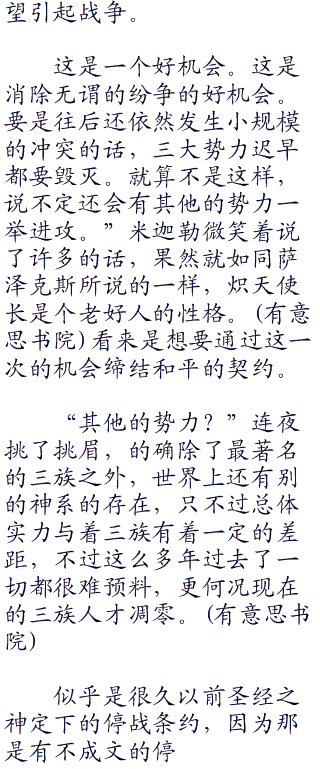 望引起战争。
这是一个好机会。这是
消除无谓的纷争的好机会。
要是往后还依然发生小规模
的冲突的话，三大势力迟早
都要毁灭。就算不是这样，
说不定还会有其他的势力一
举进攻。”米迦勒微笑着说
了许多的话，果然就如同萨
泽克斯所说的一样，炽天使
长是个老好人的性格。(有意
思书院)看来是想要通过这一
次的机会缔结和平的契约。
“其他的势力？”连夜
挑了挑眉，的确除了最著名
的三族之外，世界上还有别
的神系的存在，只不过总体
实力与着三族有着一定的差
距，不过这么多年过去了一
切都很难预料，更何况现在
的三族人才凋零。(有意思书
院)
似乎是很久以前圣经之
神定下的停战条约，因为那
是有不成文的停